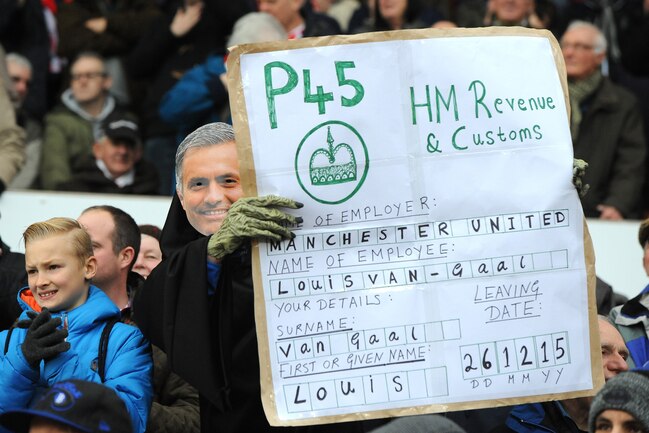 P45
HM Revenue
& Customs
OF EMPLOYER:
MANCHESTER UNITED
NAME OF EMPLOYEE:
LOUIS VAN-GAAL
YOUR DETAILS:
LEAVING
DATE:
SURNAME:
VAN GAAL
FIRST OR GIVEN NAME:
LOUIS
261215
DD MM YY